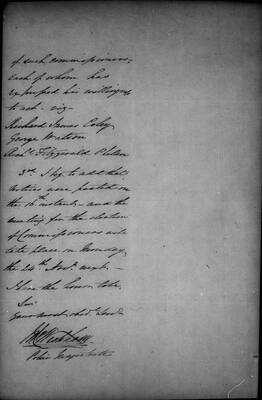 of such commissioners,
each of whom has
expressed his willingness
to act - viz -
Richard James Coley
George Watson
Fitzgerald
3rd I beg to add that
notices were posted on
the 16th instant - and the
meeting for the election
of Commissioners will
take place on Monday,
the 24th Novr. next. -
I have the honor to be,
Sir
Your most obedt. Servt.
Police Magistrate